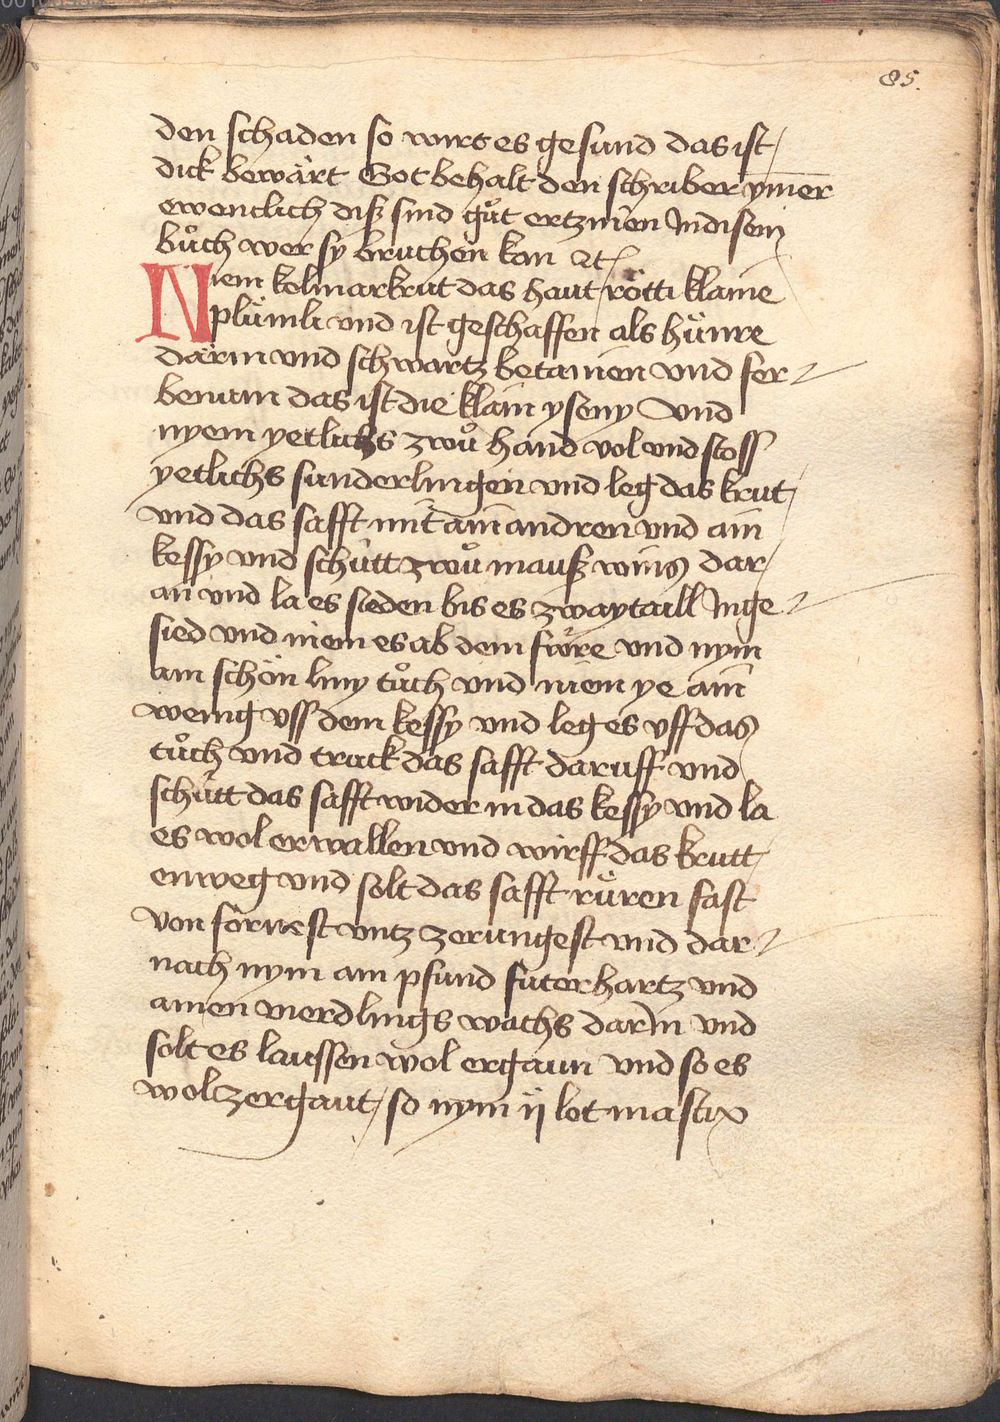 85.
den schaden so wirt es gesund das ist
dick bewårt Got behalt den schriber ymer
ewenclich diß sind gůt ertznien Indisem
bůch wer sy bruchen kan ⁊c
Niem kolmarkrut das haut rötti klaine
plümli vnd ist geschaffen als hünre
därm vnd schwartz betanien vnd fer
benam das ist die klain yseny Vnd
nyem yetlichs zwů hand vol vnd stoss
yetlichs sunderlingen vnd leg das krut
vnd das safft mit ain andren vnd ain
kessy vnd schütt zwů mauß wins dar
an vnd la es sieden bis es zwaytaill Inge
sied vnd niem es ab dem füre vnd nym
ain schön liny tůch vnd niem ye ain
wenig vss dem kessy vnd leg es vff das
tůch vnd truck das safft daruff vnd
schütt das safft wider in das kessy vnd la
es wol erwallen vnd wirff das krutt
enweg vnd solt das safft rüren fast
von fornest vntz zerungest vnd dar
nach nym ain pfund futerhartz vnd
ainen vierdlings wachs darin vnd
solt es laussen wol ergaun vnd so es
wol zergaut so nym ij lot mastix